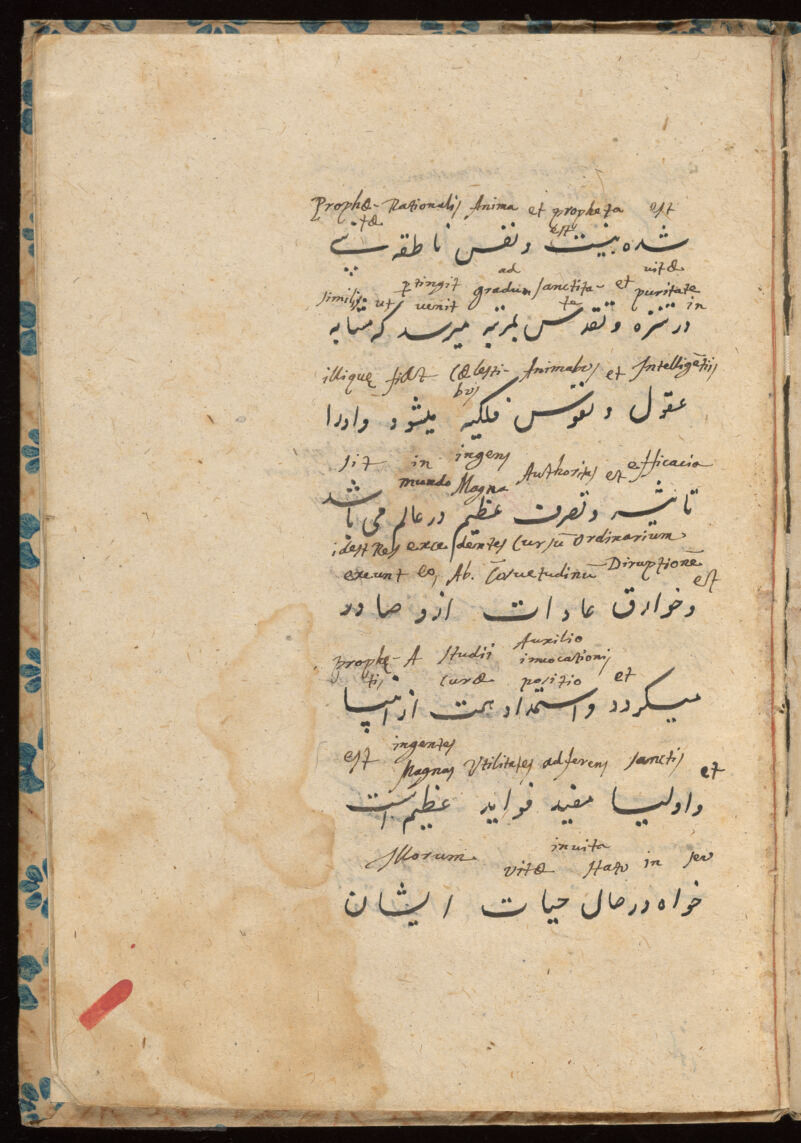 Prophæ- Rationalis Anima et propheta est
tæ est
شده بنیت و نفس ناطقه نبی
pertingit ad vitæ
similis ut venit gradum sanctita- et puritate
te in
در تنزه و تقدس بمرتبه میرسد که متشابه
illique fiat Cælesti- Animabus et Intelligentiis
bus
عقول و نفوس فلکیه میشود و اورا
sit in ingens Authoritas et efficacia
mundo Magna
تاثیر و تصرف عظیم در عالم می باشد
idest Res excedentes Cursū Ordinarium
exeunt eo, Ab. Cōsuetudinū Diruptionē est
و خوارق عادات ازو صادر
Auxilio
prophę- A studii invocationis
tis curæ positio et
میگردد و استمداد همت از انبیا
est ingentes
Magnas Utilitates adferens sanctis et
و اولیا مفید فواید عظیم است
Illorum invita
vitæ statu in seu
خواه در حال حیات ایشان